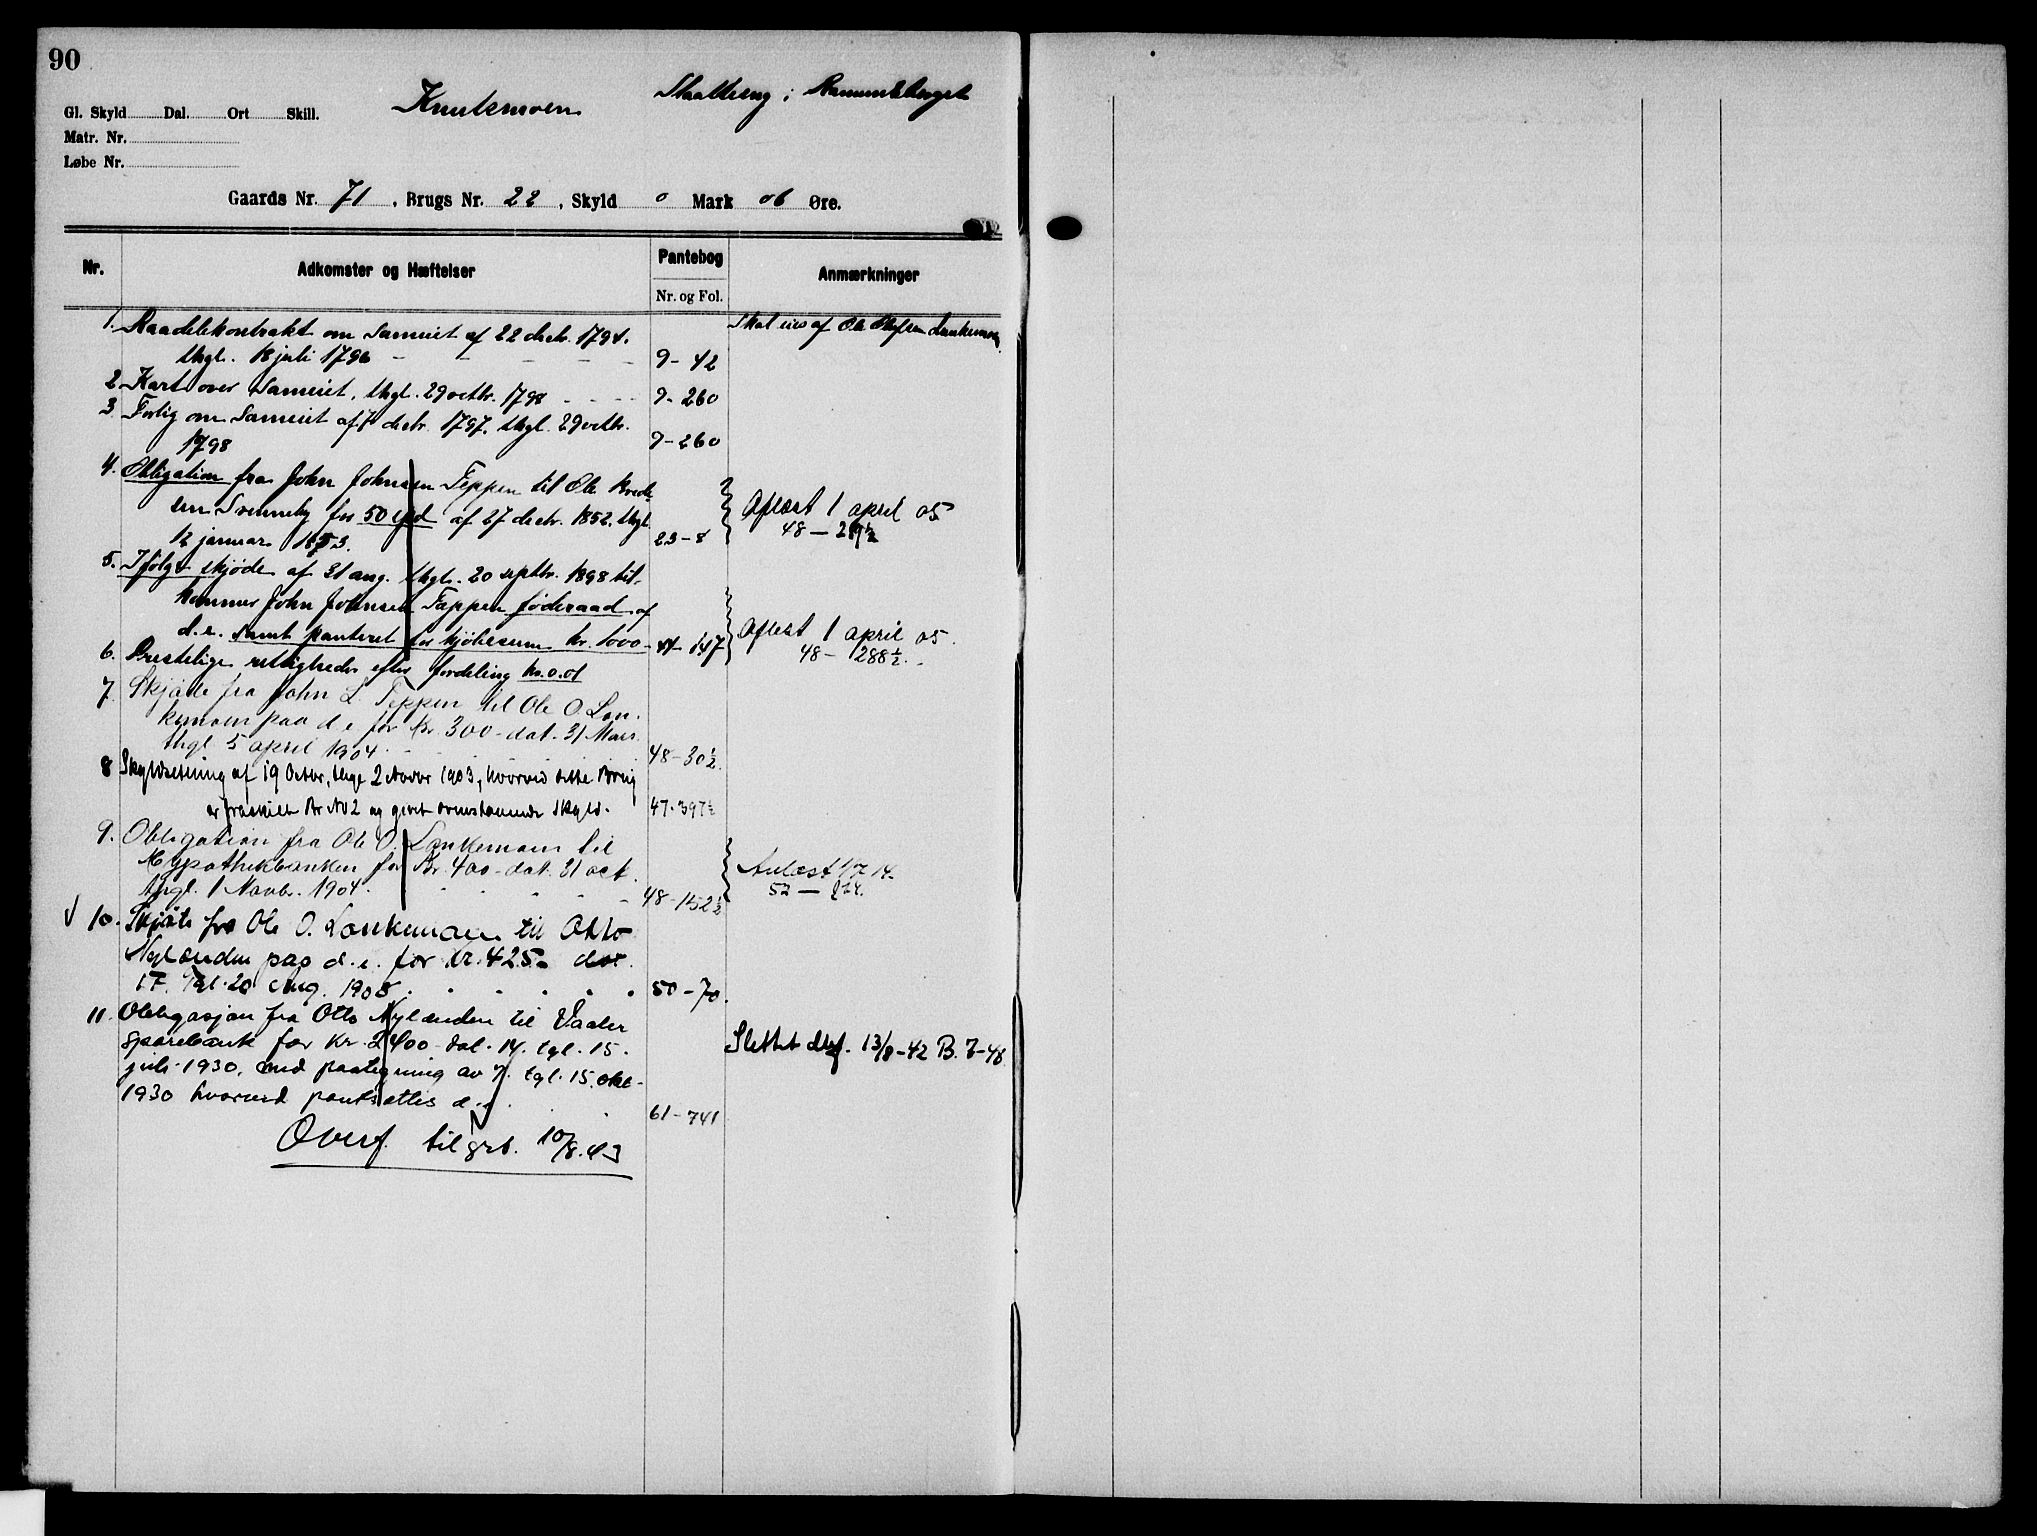 90
Gl. Skyld Dal. Ort Skill. Knutsmoen Skatteng i
Matr. Nr.
Løbe Nr.
Gaards Nr. 71, Brugs Nr. 22, Skyld 0 Mark 06 Øre.
Nr. Adkomster og Hæftelser Pantebog Nr. og Fol. Anmærkninger
1. Raadelekontrakt om Sameiet af 22 decbr. 1794. Skal eies af Ole Olufsen Lankemoen
thgl. 18 juli 1796 9-42
2 Kart over Sameiet, thgl. 29 octbr. 1798 9-260
3 Forlig om Sameiet af 7 decbr. 1797. thgl. 29 octbr.
1798 9-260
4. Obligation fra John Johnsen Teppen til Ole
sen Svenneby for 50 spd af 27 decbr. 1852, thgl. Aflæst 1 april 05
12 januar 1853. 23-8 48-
5. Ifølge skjøde af 31 aug. thgl. 20 septbr. 1898 til-
kommer John Johnsen Tæppen føderaad af
d.e. samt panteret for kjøbesum kr. 1000- 147 Aflæst 1 april 05.
6. Prestelige rettigheder efter fordeling kr. 0.01 48-288½.
7 Skjøde fra John L. Teppen til Ole O. Lan-
kemoen paa d.e for Kr. 300- dat. 31 Mars
thgl 5 april 1904 48-30½.
8 Skyldsetning af 19 Octbr, thgl 2 Novbr 1903, hvorved dette Brug
er fraskilt Br No 2 og givet ovenstaaende Skyld. 47-397½
9. Obligation fra Ole O. Lankemoen til
Hypothekbanken for Kr. 400- dat. 31 oct. Avlæst 1/7 14
thgl. 1 Novbr. 1904. 48-152½ 52-
10. Skjøte fra Ole O. Lankemoen til Otto
Nylænden paa d.e. for kr. 425- dat.
17. Tgl. 20 Aug. 1908. 50-70.
11. Obligasjon fra Otto Nylænden til Vaaler
sparebank for kr. 2400- dat. 14. tgl. 15. Slettet 13/8-42 B. 7-48
juli 1930, med paategning av 7. tgl. 15. okt-
1930 hvorved pantsettes d.e. 61-741
Overf. til grb. 10/8.43